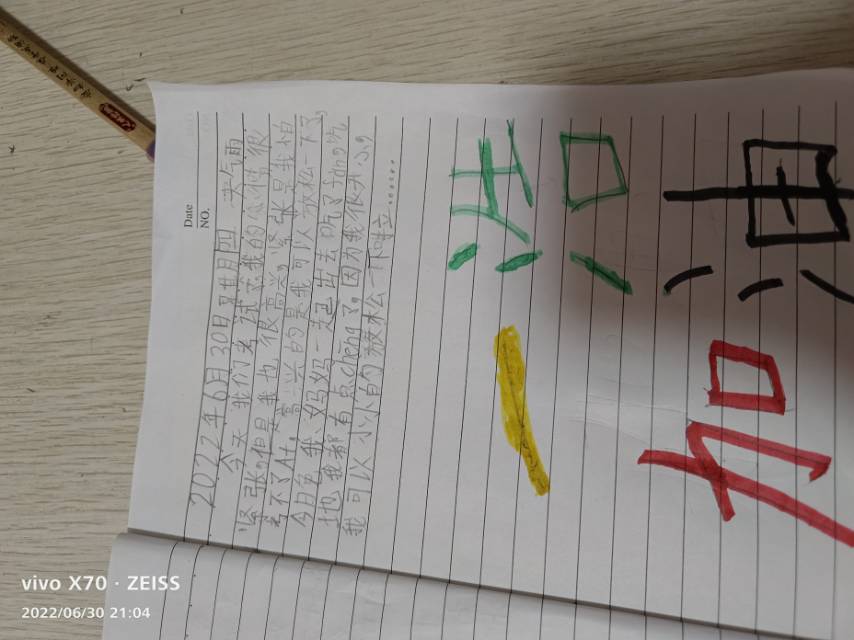 Date
NO.
2022年6月30日 天气雨
今天我们考试我的心情很
紧张,但是我也很高兴,紧张是我怕
考不了A+。高兴的是我可以放松一下了。
我 妈妈一起出去吃了
我都有点cheng了。因为我很开心。
我可以小小的放松一下啦......
一活
加油
vivo X70 · ZEISS
2022/06/30 21:04